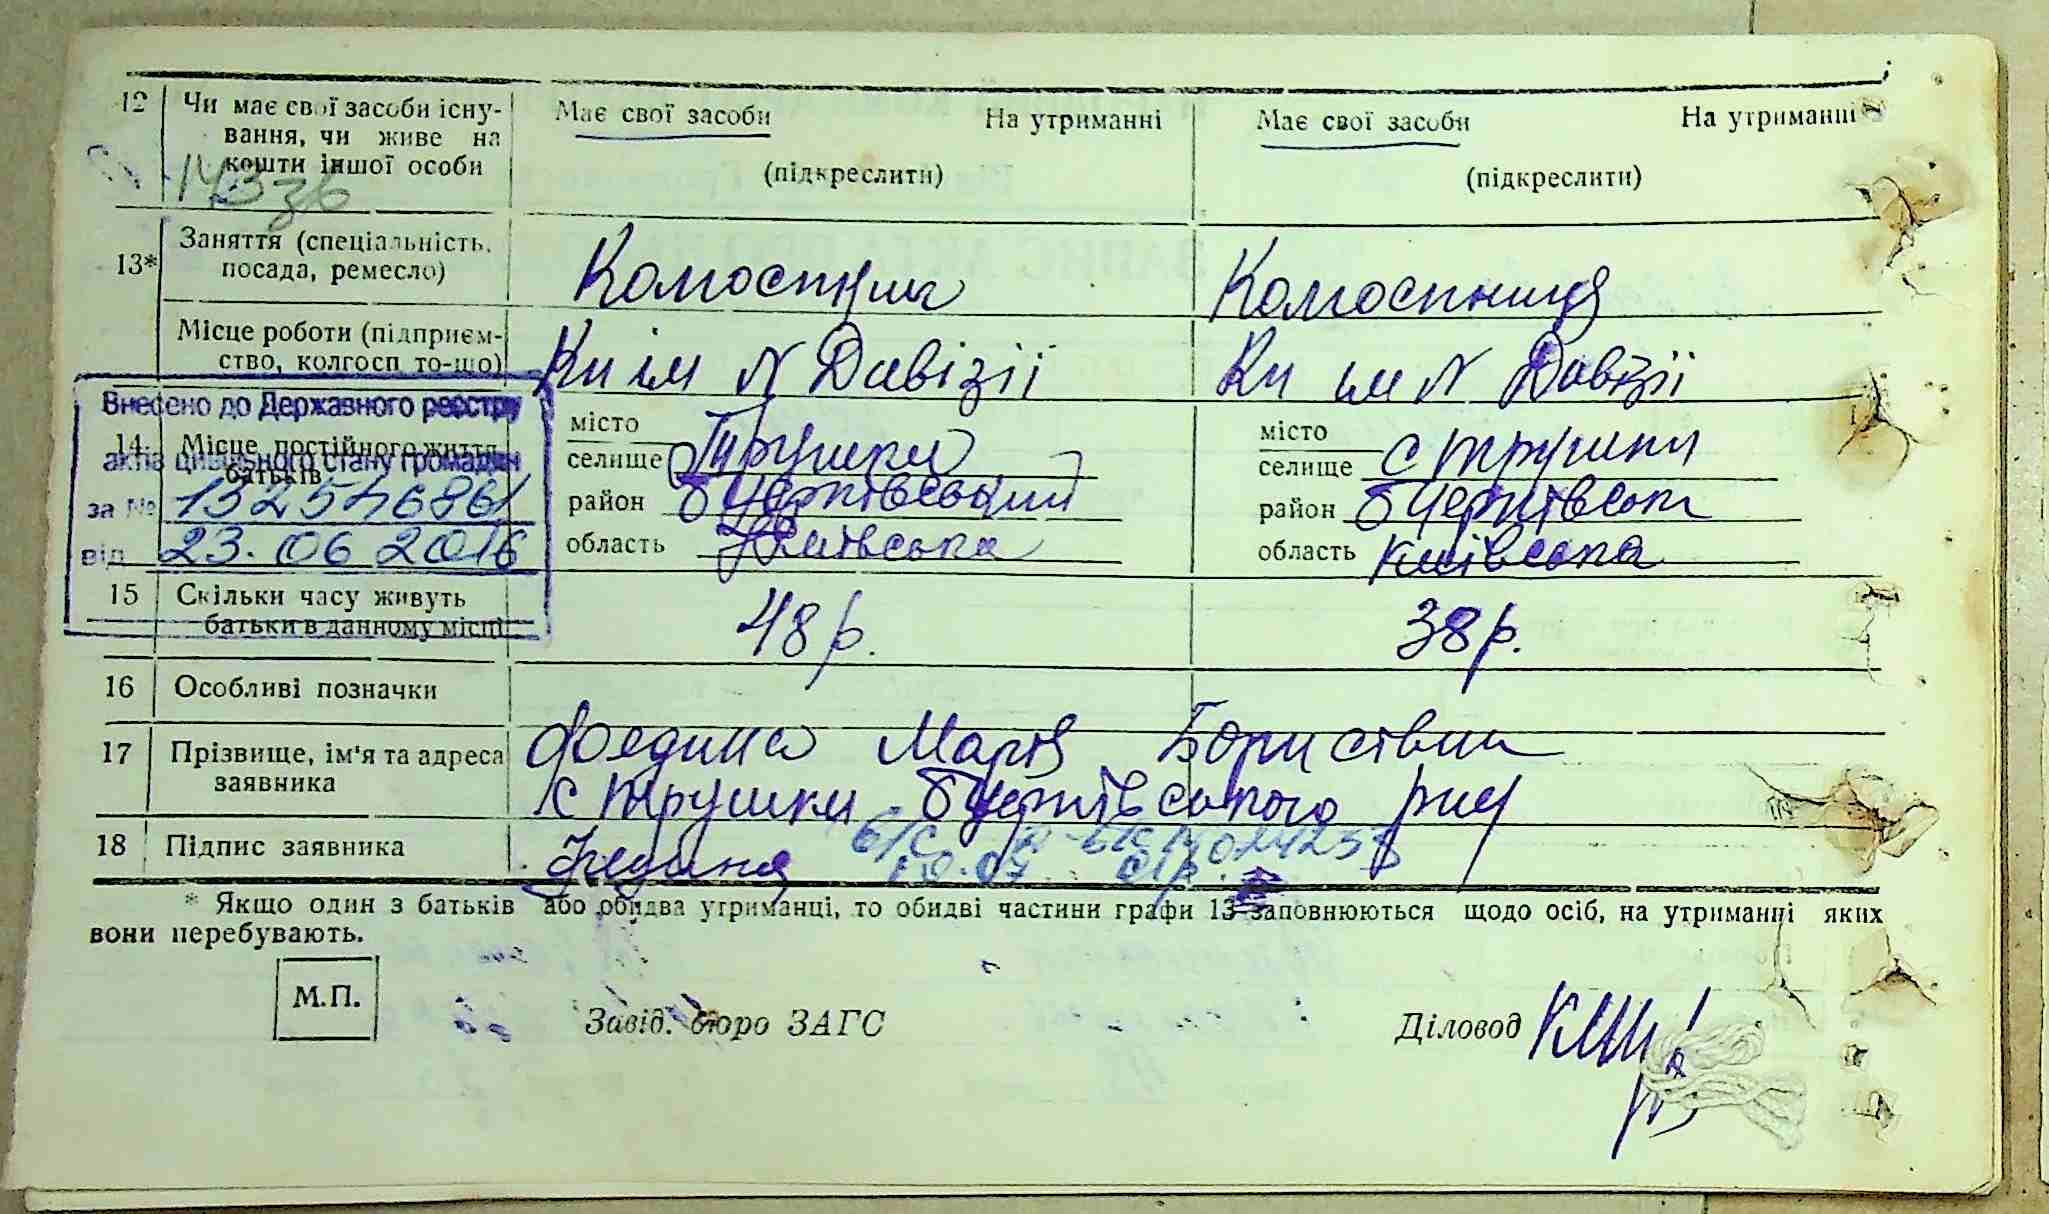 12 Чи має свої засоби існу- Має свої засоби На утриманні Має свої засоби На утриманні
вання, чи живе на
кошти іншої особи (підкреслити) (підкреслити)
143зв
13* Заняття (спеціальність, посада, ремесло) Колгоспник Колгоспниця
Місце роботи (підприєм-
ство, колгосп то-що) Кп ім N Дивізії Кп ім N Дивізії
Внесено до Державного реєстру
14 Місце постійного життя батьків
актів цивільного стану громадян
за № 132546861
від 23.06 2016
місто
селище Трушки
район Бцерківський
область Київська
місто
селище с Трушки
район Бцерківськ
область Київська
15 Скільки часу живуть 48 р. 38 р.
батьки в данному місці
16 Особливі позначки
17 Прізвище, ім'я та адреса Марія Борисівна
заявника с Трушки Бцерківського р-ну
18 Підпис заявника
* Якщо один з батьків або обидва утриманці, то обидві частини графи 13 заповнюються щодо осіб, на утриманні яких
вони перебувають.
М.П.
Завід. бюро ЗАГС Діловод